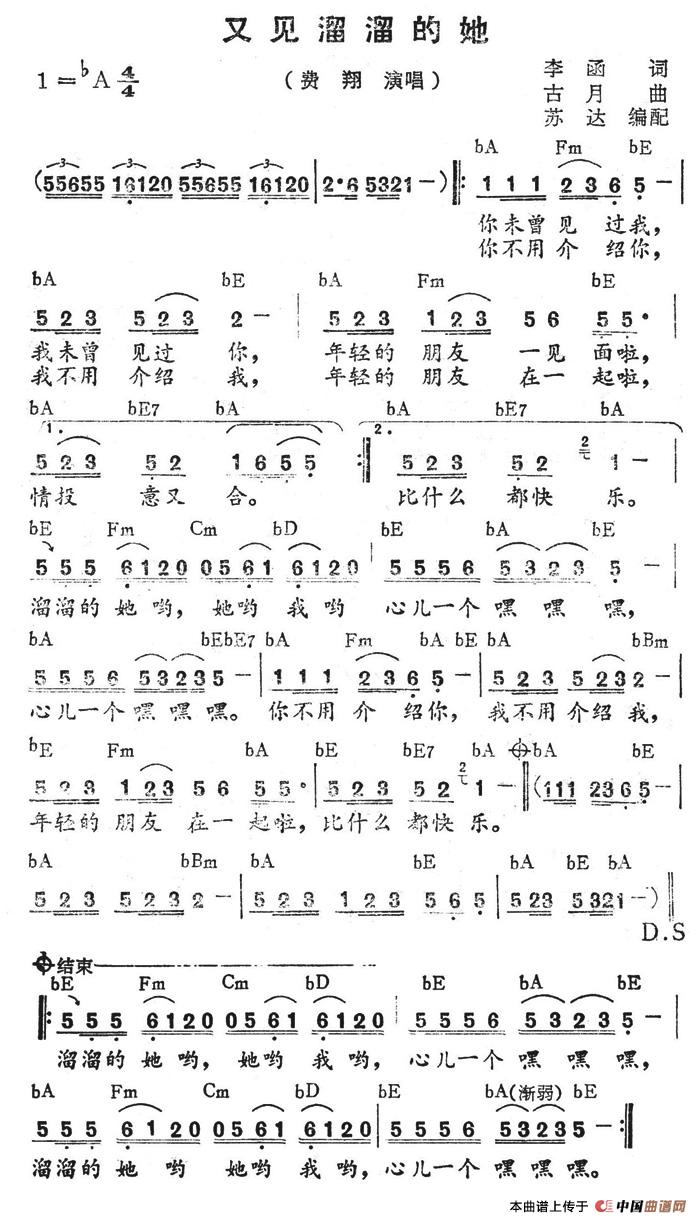 又见溜溜的她
1=♭A 4/4
（费 翔 演唱）
李 函 词
古 月 曲
苏 达 编配
bA Fm bE
(55655 16120 55655 16120 | 2·6 5321 -) ‖: 111 236 5 - |
你未曾见 过我，
你不用介 绍你，
bA bE bA Fm bE
523 523 2 - | 523 123 56 55· |
我未曾 见过 你， 年轻的 朋友 一见 面啦，
我不用 介绍 我， 年轻的 朋友 在一 起啦，
bA bE7 bA bA bE7 bA
1. 2.
523 52 1655 :‖ 523 52 1 - |
情投 意又 合。 比什么 都快 乐。
bE Fm Cm bD bE bA bE
555 6120 0561 6120 | 5556 5323 5 - |
溜溜的 她哟， 她哟 我哟 心儿一个 嘿 嘿 嘿，
bA bEbE7 bA Fm bA bE bA bBm
5556 53235 - | 111 236 5 - | 523 5232 - |
心儿一个 嘿 嘿 嘿。 你不用 介 绍你， 我不用介绍 我，
bE Fm bA bE bE7 bA bA bE
523 123 56 55· | 523 52 1 - ‖ (111 2365 - |
年轻的 朋友 在一 起啦， 比什么 都快 乐。
bA bBm bA bE bA bE bA
523 5232 - | 523 123 565 | 523 5321 -) ‖
D.S
结束
bE Fm Cm bD bE bA bE
‖: 555 6120 0561 6120 | 5556 5323 5 - |
溜溜的 她哟， 她哟 我哟， 心儿一个 嘿 嘿 嘿，
bA Fm Cm bD bE bA(渐弱) bE
555 6120 0561 6120 | 5556 53235 - :‖
溜溜的 她 哟 她哟 我 哟， 心儿一个 嘿 嘿 嘿。
本曲谱上传于 中国曲谱网